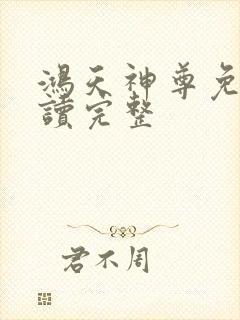 鴻天神尊免
讀完整
君不周